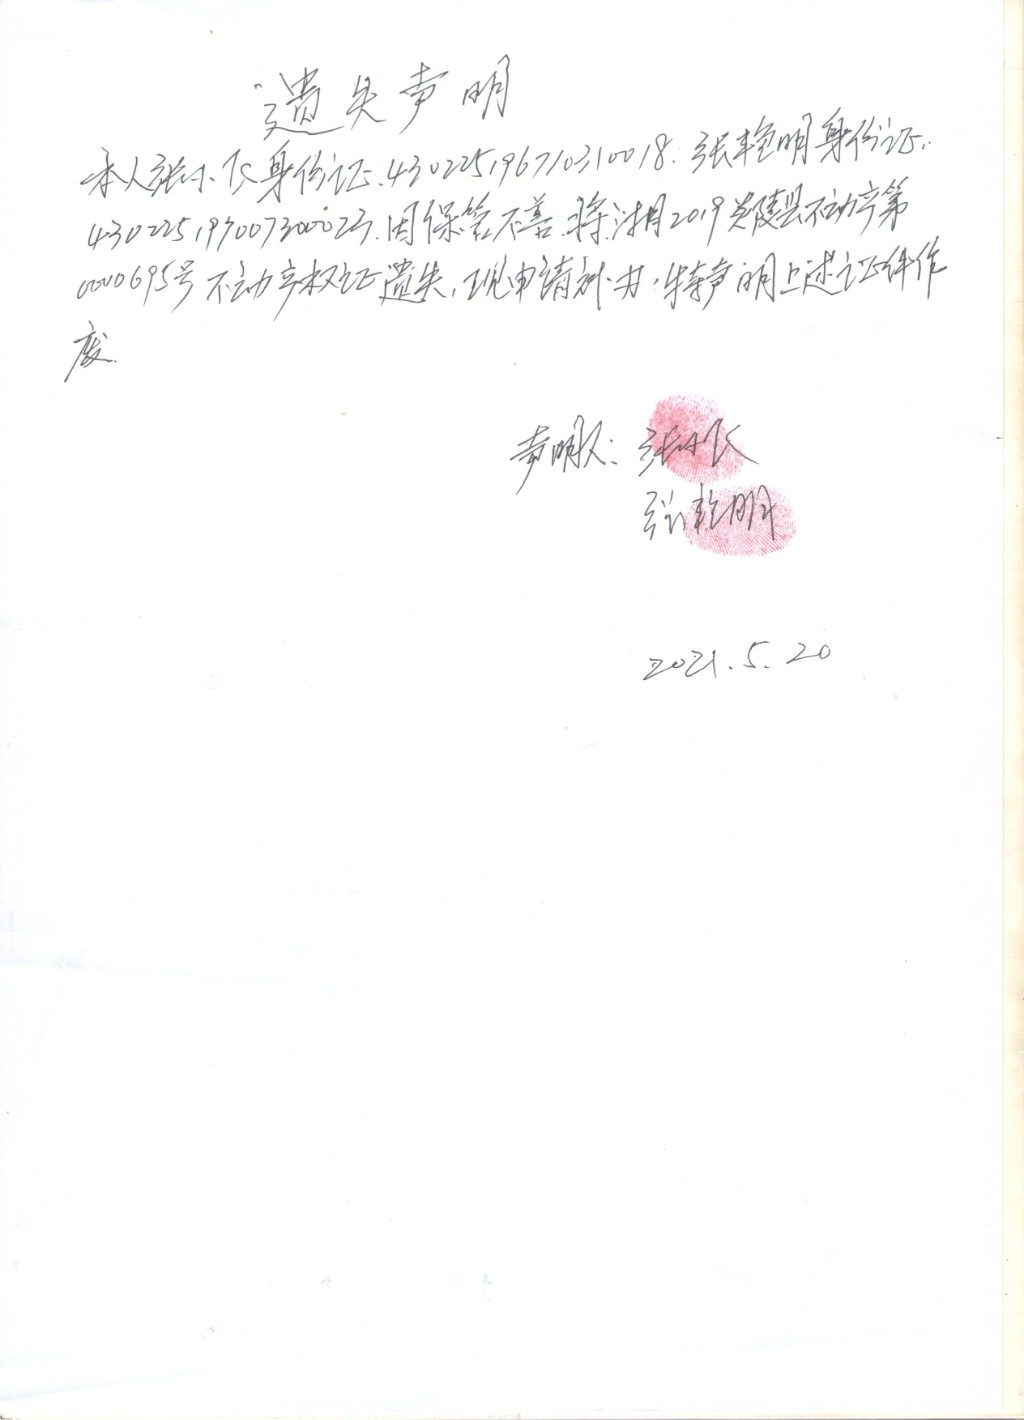 遗失声明
本人张小飞身份证.430225196710310018.张艳明身份证.
430225197007300023.因保管不善.将湘2019炎陵县不动产第
0000695号不动产权证遗失,现申请补办,特声明上述证件作
废.
声明人:张小飞
张艳明
2021.5.20